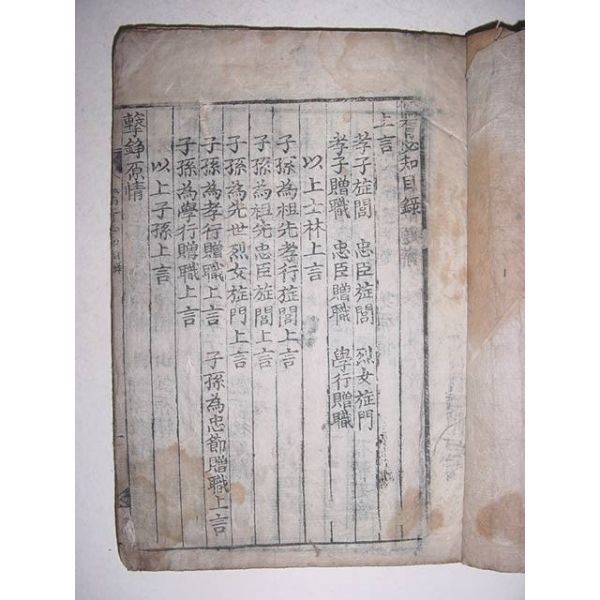 儒胥必知目録
上言
孝子旌閭 忠臣旌閭 烈女旌門
孝子贈職 忠臣贈職 學行贈職
以上士林上言
子孫為祖先孝行旌閭上言
子孫為祖先忠臣旌閭上言
子孫為先世烈女旌門上言
子孫為孝行贈職上言 子孫為忠節贈職上言
子孫為學行贈職上言
以上子孫上言
擊錚原情